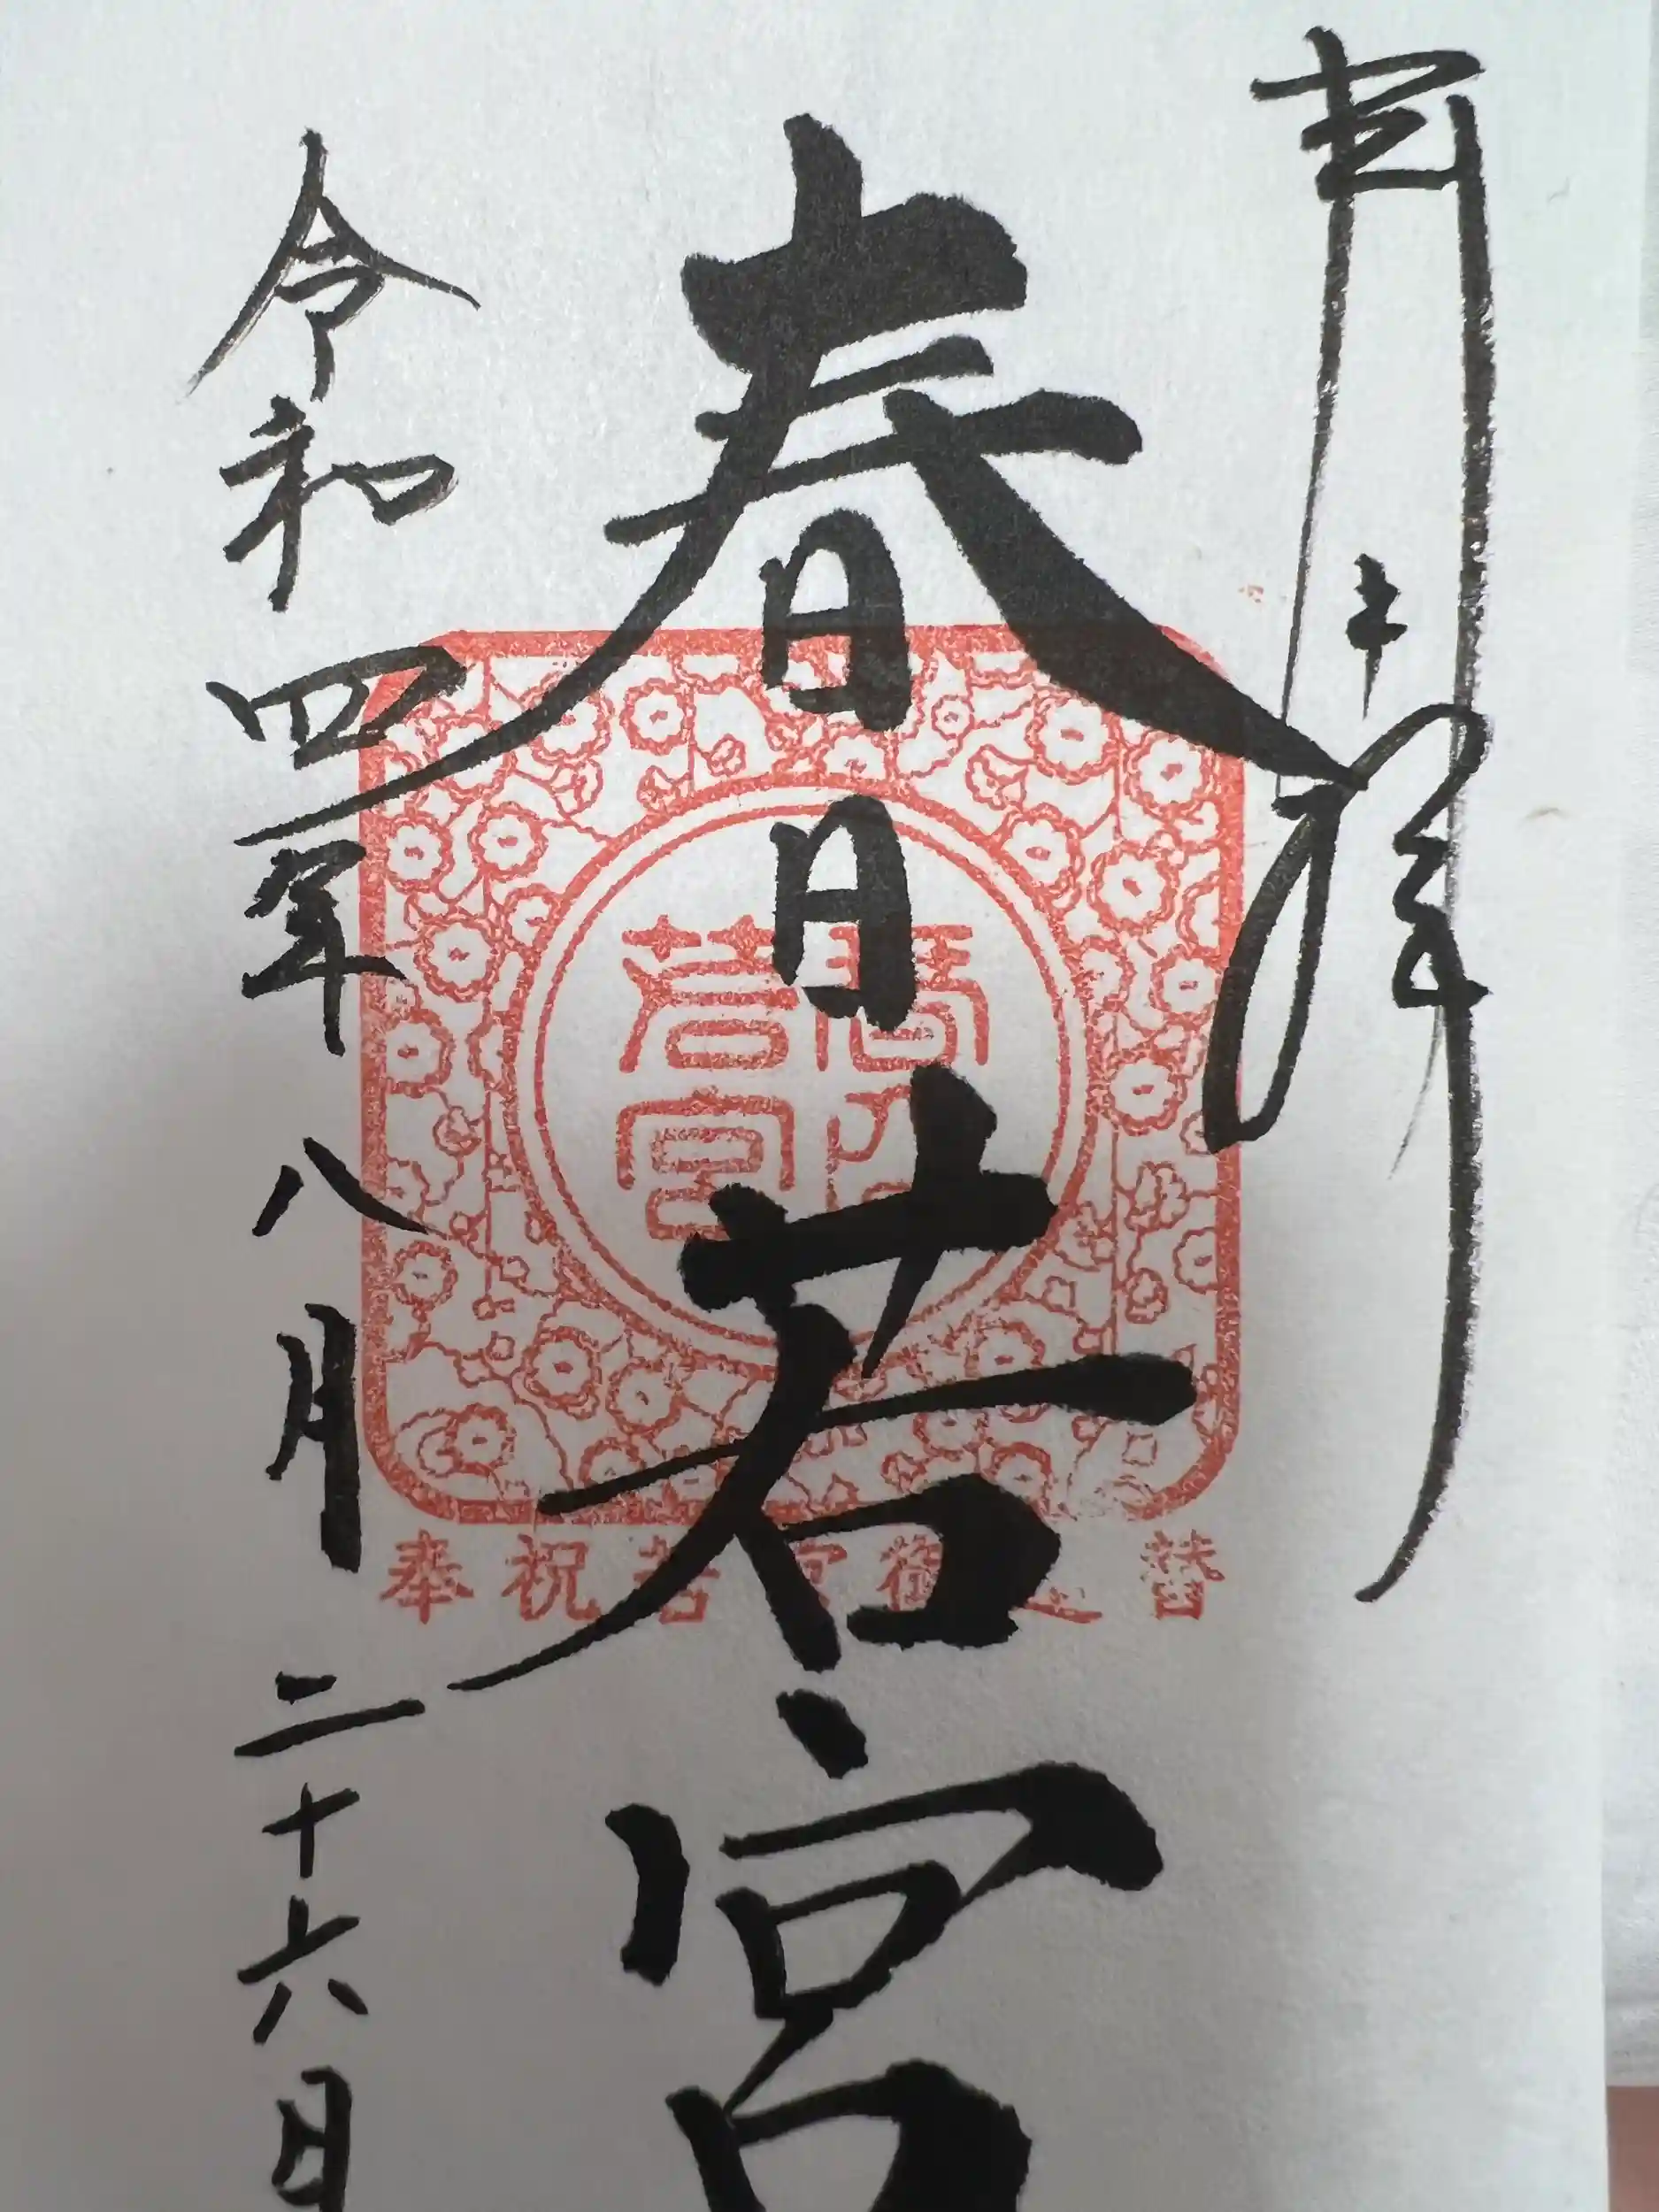 拝
春日若宮
令和四年八月二十六日
若宮
奉祝若宮御造替